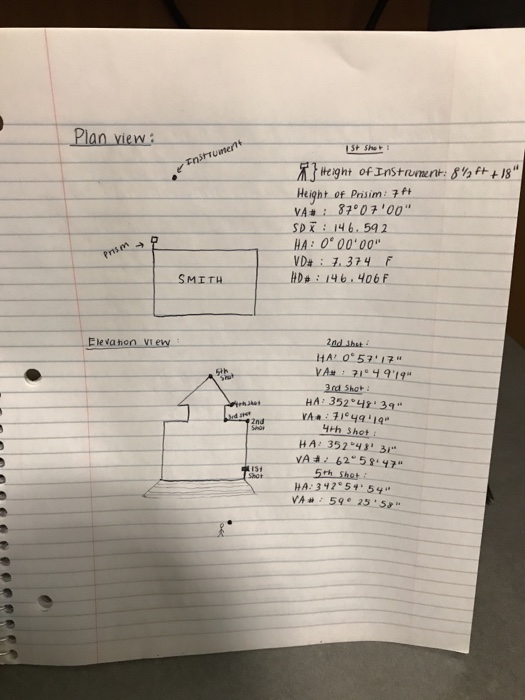 Plan view:
Instrument
1st shot:
} Height of Instrument: 8 1/2 ft + 18"
Height of Prisim: 7 ft
VA# : 87° 07' 00"
SD x̄ : 146.592
HA: 0° 00' 00"
VD# : 7.374 F
HD# : 146.406 F
Prism →
SMITH
Elevation view:
5th shot
4th shot
3rd shot
2nd shot
1st shot
2nd shot:
HA: 0° 57' 17"
VA# : 71° 49' 19"
3rd shot:
HA: 352° 48' 39"
VA# : 71° 49' 19"
4th shot:
HA: 352° 48' 31"
VA #: 62° 58' 47"
5th shot:
HA: 342° 54' 54"
VA #: 59° 25' 58"